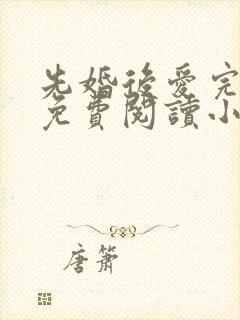 先婚後愛完
免費閱讀小
唐簫